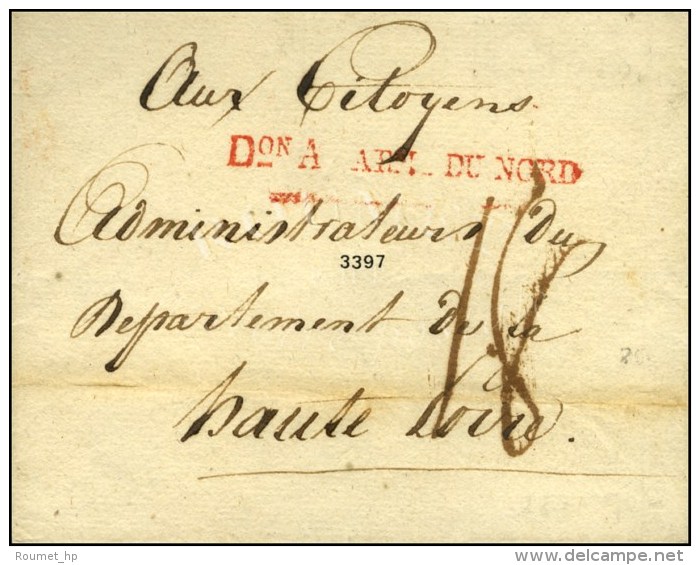 Aux Citoyens
DON A ARM. DU NORD
Administrateurs du
3397
Departement de la
haute Loire.
18
Roumet_hp
delcampe.net